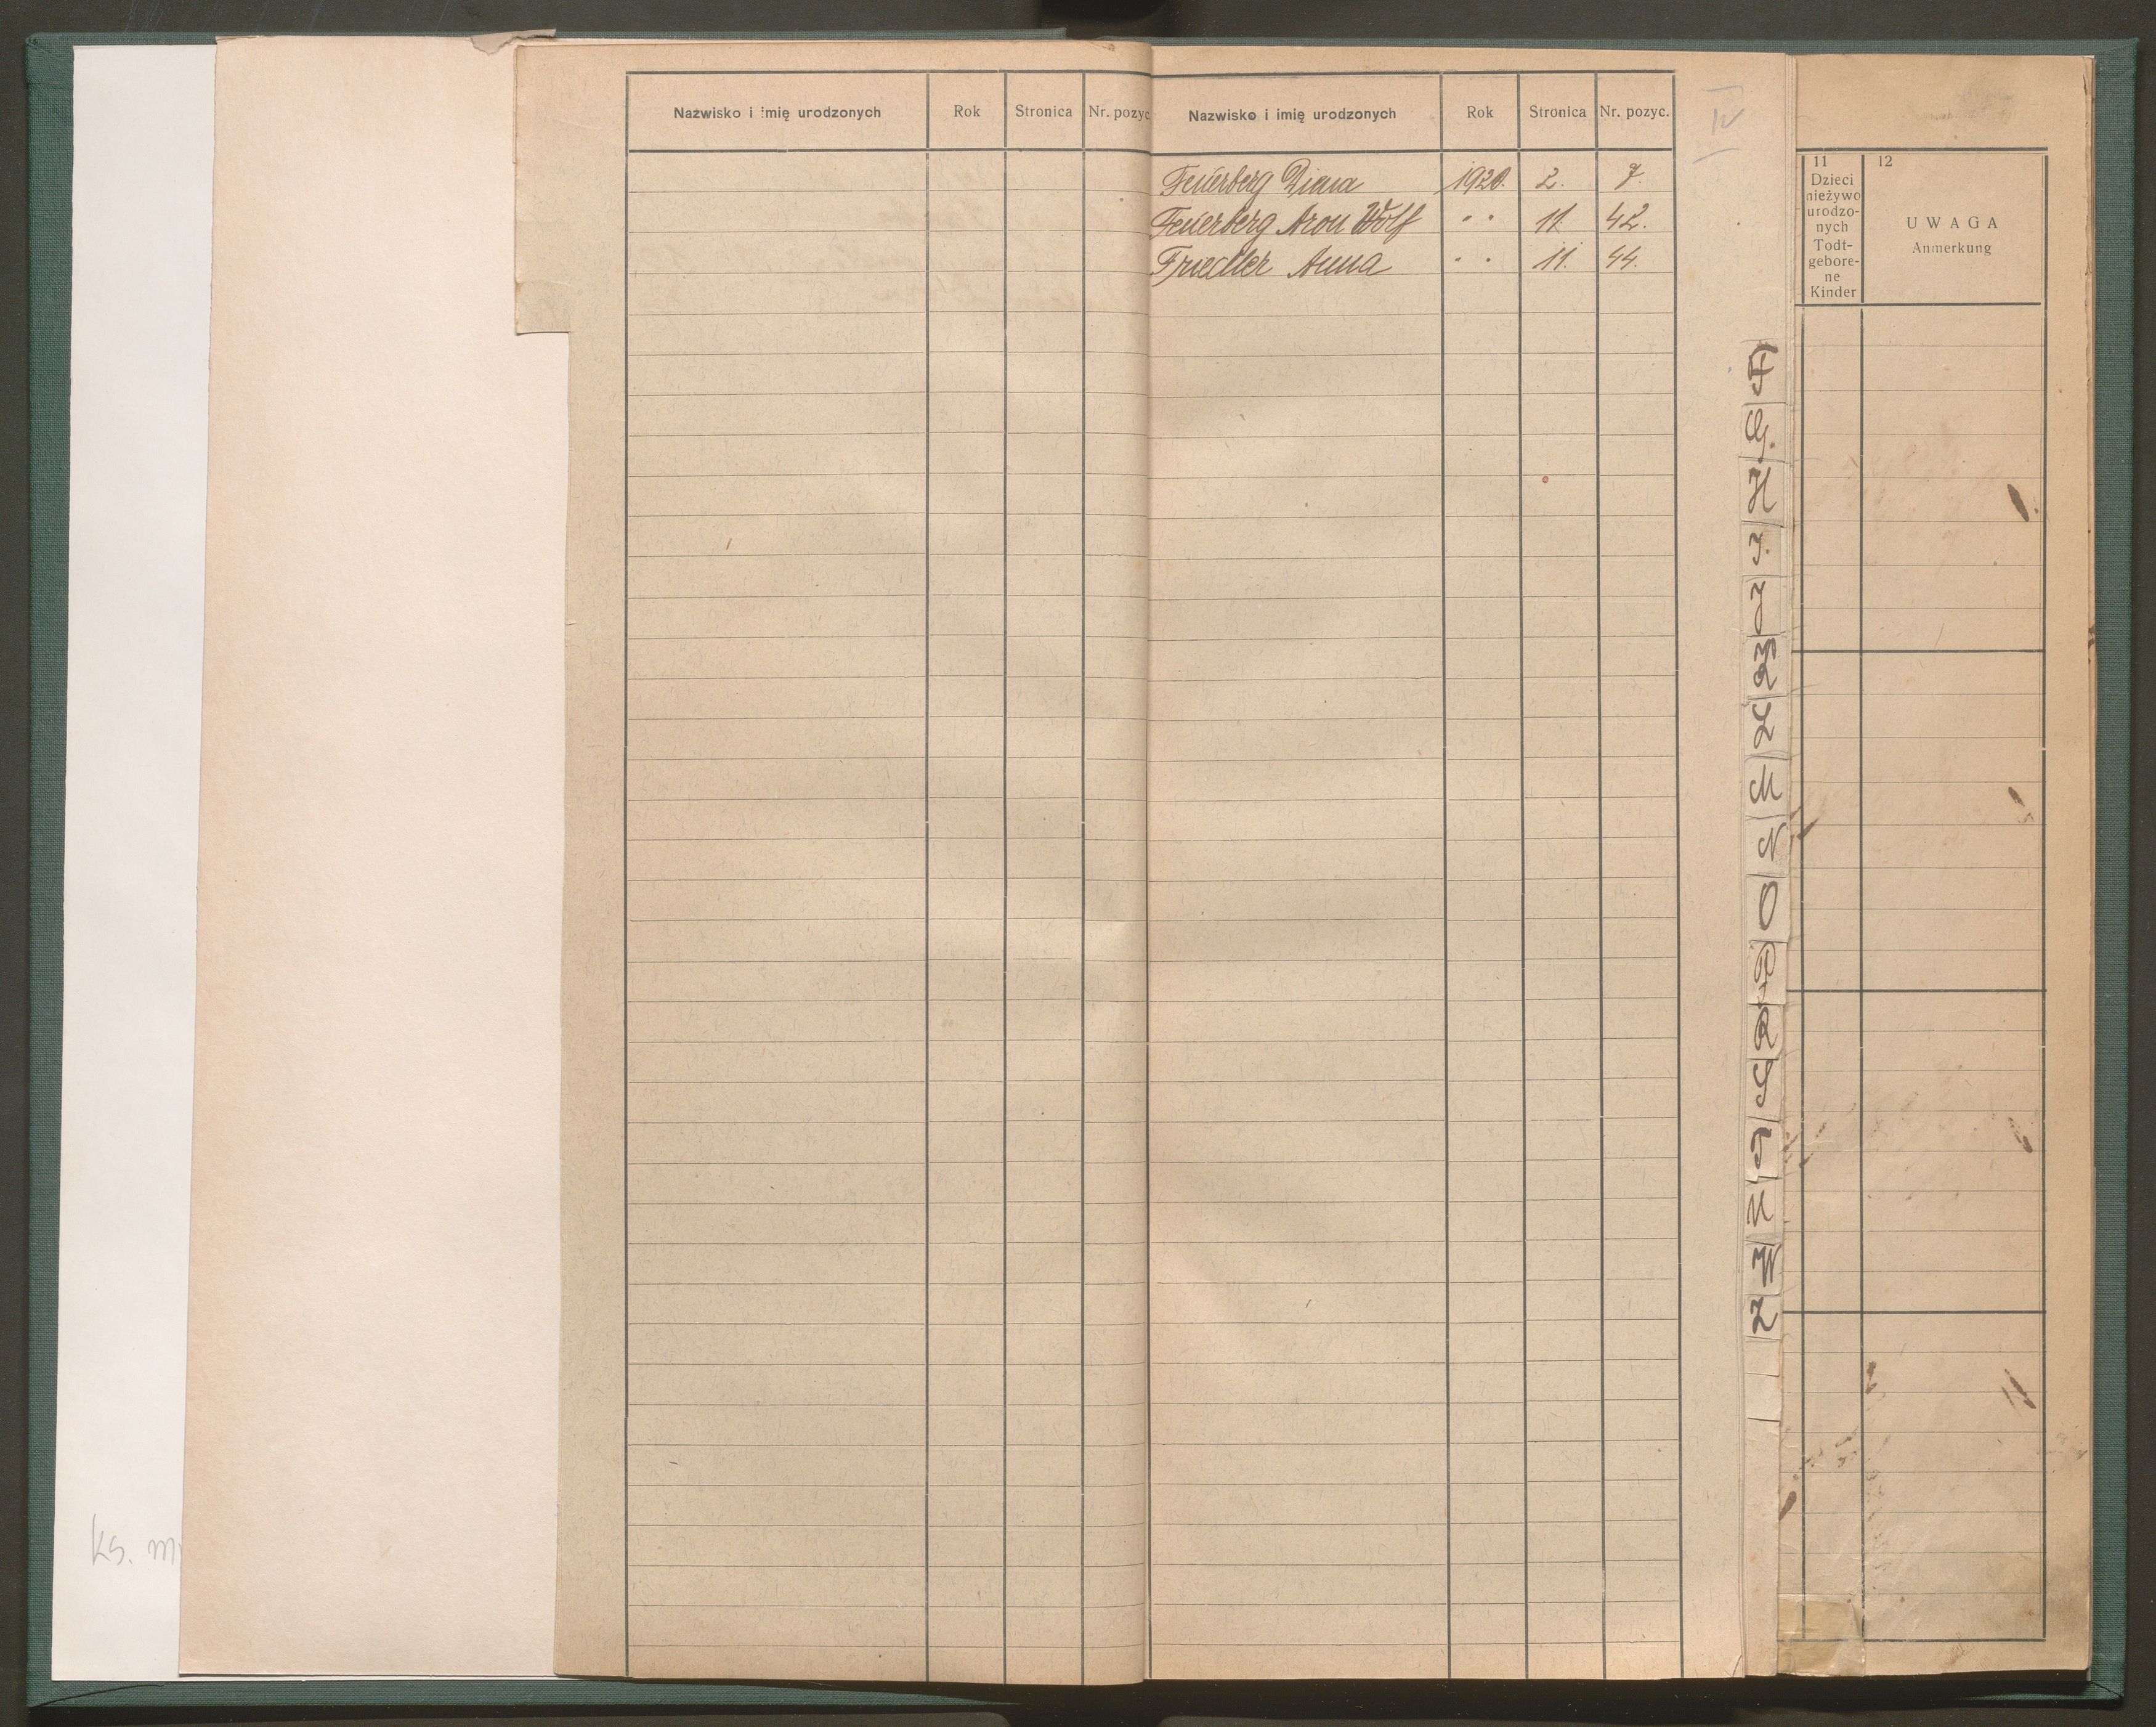 Nazwisko i imię urodzonych Rok Stronica Nr. pozyc
Nazwisko i imię urodzonych Rok Stronica Nr. pozyc.
Feuerberg Dina 1920. 2. 7.
Feuerberg Aron Wolf " " 11. 42.
Friedler Anna " " 11. 44.
IV
F
G.
H
I.
J
K
L
M
N
O
P
R
S
T
U
W
Z
11
Dzieci
nieżywo
urodzo-
nych
Todt-
gebore-
ne
Kinder
12
UWAGA
Anmerkung
ks.